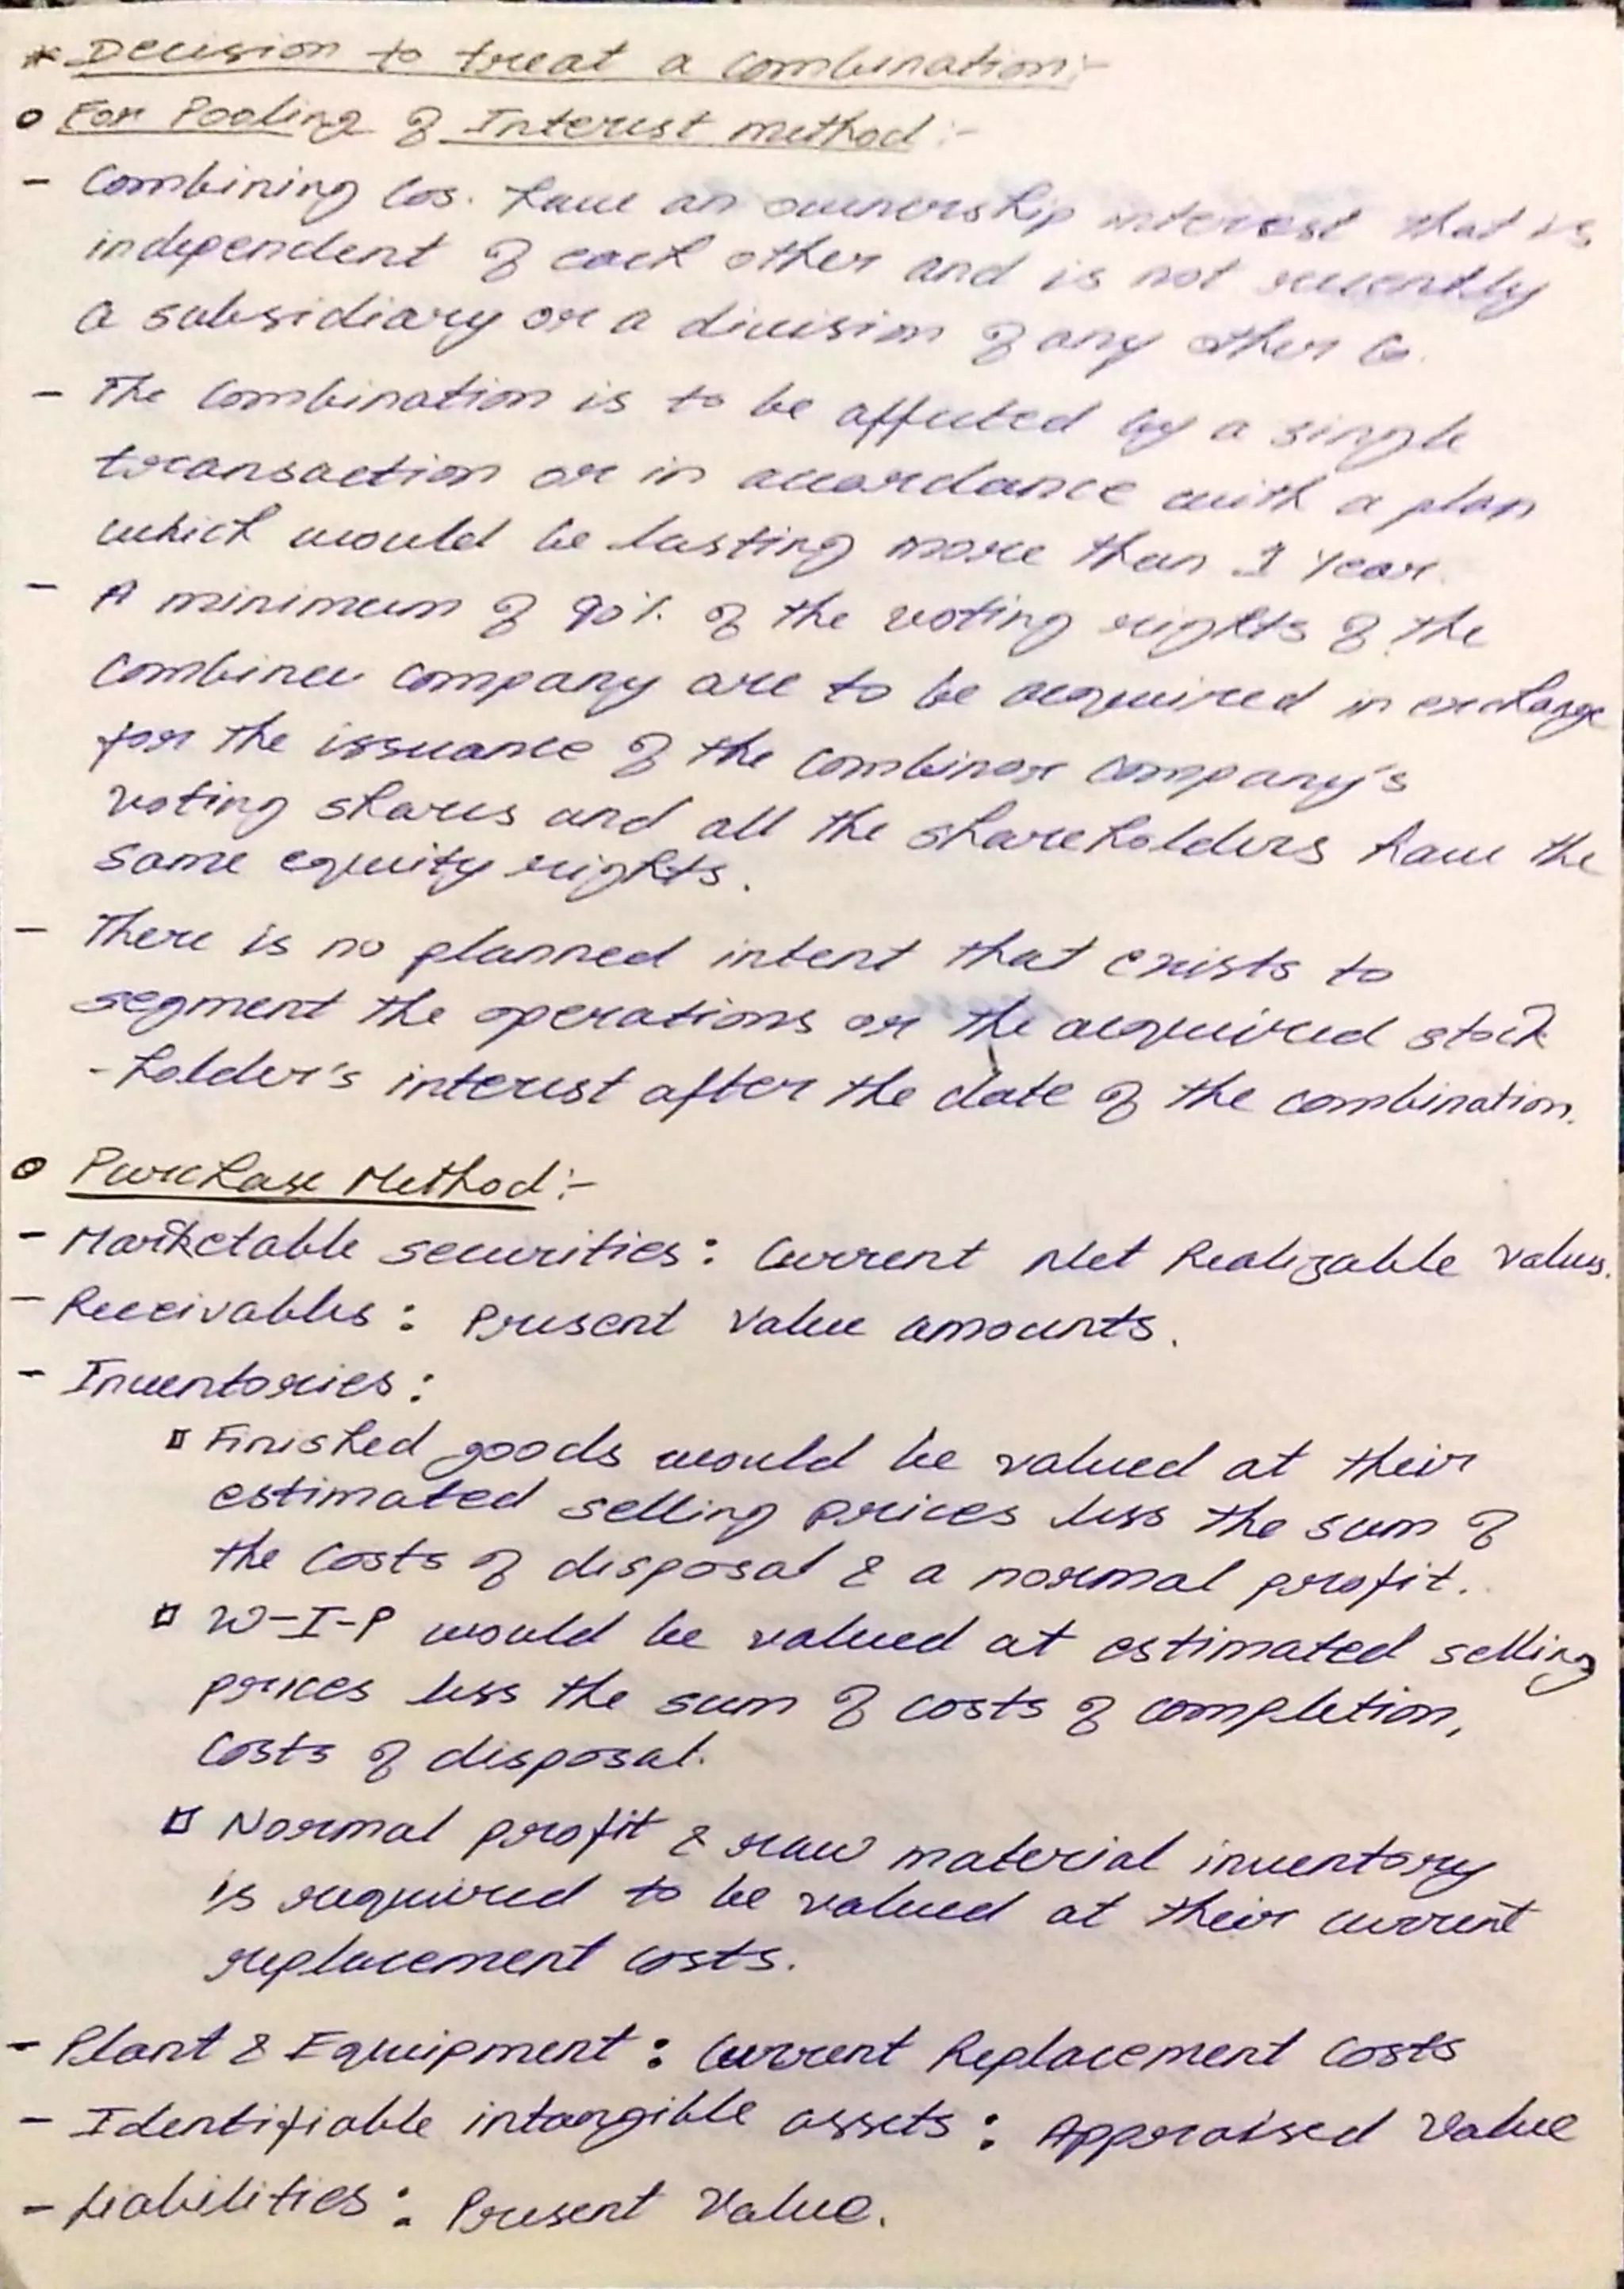 * Decision to treat a combination:-
o For Pooling of Interest method:-
- Combining Cos. have an ownership interest that is
independent of each other and is not recently
a subsidiary or a division of any other Co.
- The combination is to be affected by a single
transaction or in accordance with a plan
which would be lasting more than 1 Year.
- A minimum of 90%. of the voting rights of the
combinee company are to be acquired in exchange
for the issuance of the combinor company's
voting shares and all the shareholders have the
same equity rights.
- There is no planned intent that exists to
segment the operations or the acquired stock
-holder's interest after the date of the combination.
o Purchase Method:-
- Marketable securities: Current Net Realizable values.
- Receivables: Present Value amounts.
- Inventories:
▫ Finished goods would be valued at their
estimated selling prices less the sum of
the costs of disposal & a normal profit.
▫ W-I-P would be valued at estimated selling
prices less the sum of costs of completion,
costs of disposal.
▫ Normal profit & raw material inventory
is required to be valued at their current
replacement costs.
- Plant & Equipment: Current Replacement Costs
- Identifiable intangible assets: Appraised Value
- Liabilities: Present Value.